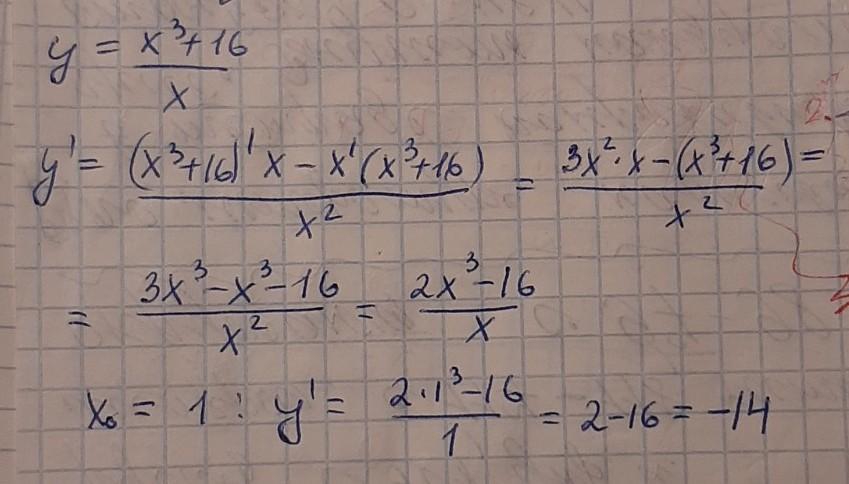 y = (x³+16)/x
y' = ((x³+16)'x − x'(x³+16))/x² = (3x²·x − (x³+16))/x² =
= (3x³−x³−16)/x² = (2x³−16)/x
x₀ = 1 : y' = (2·1³−16)/1 = 2−16 = −14
2.